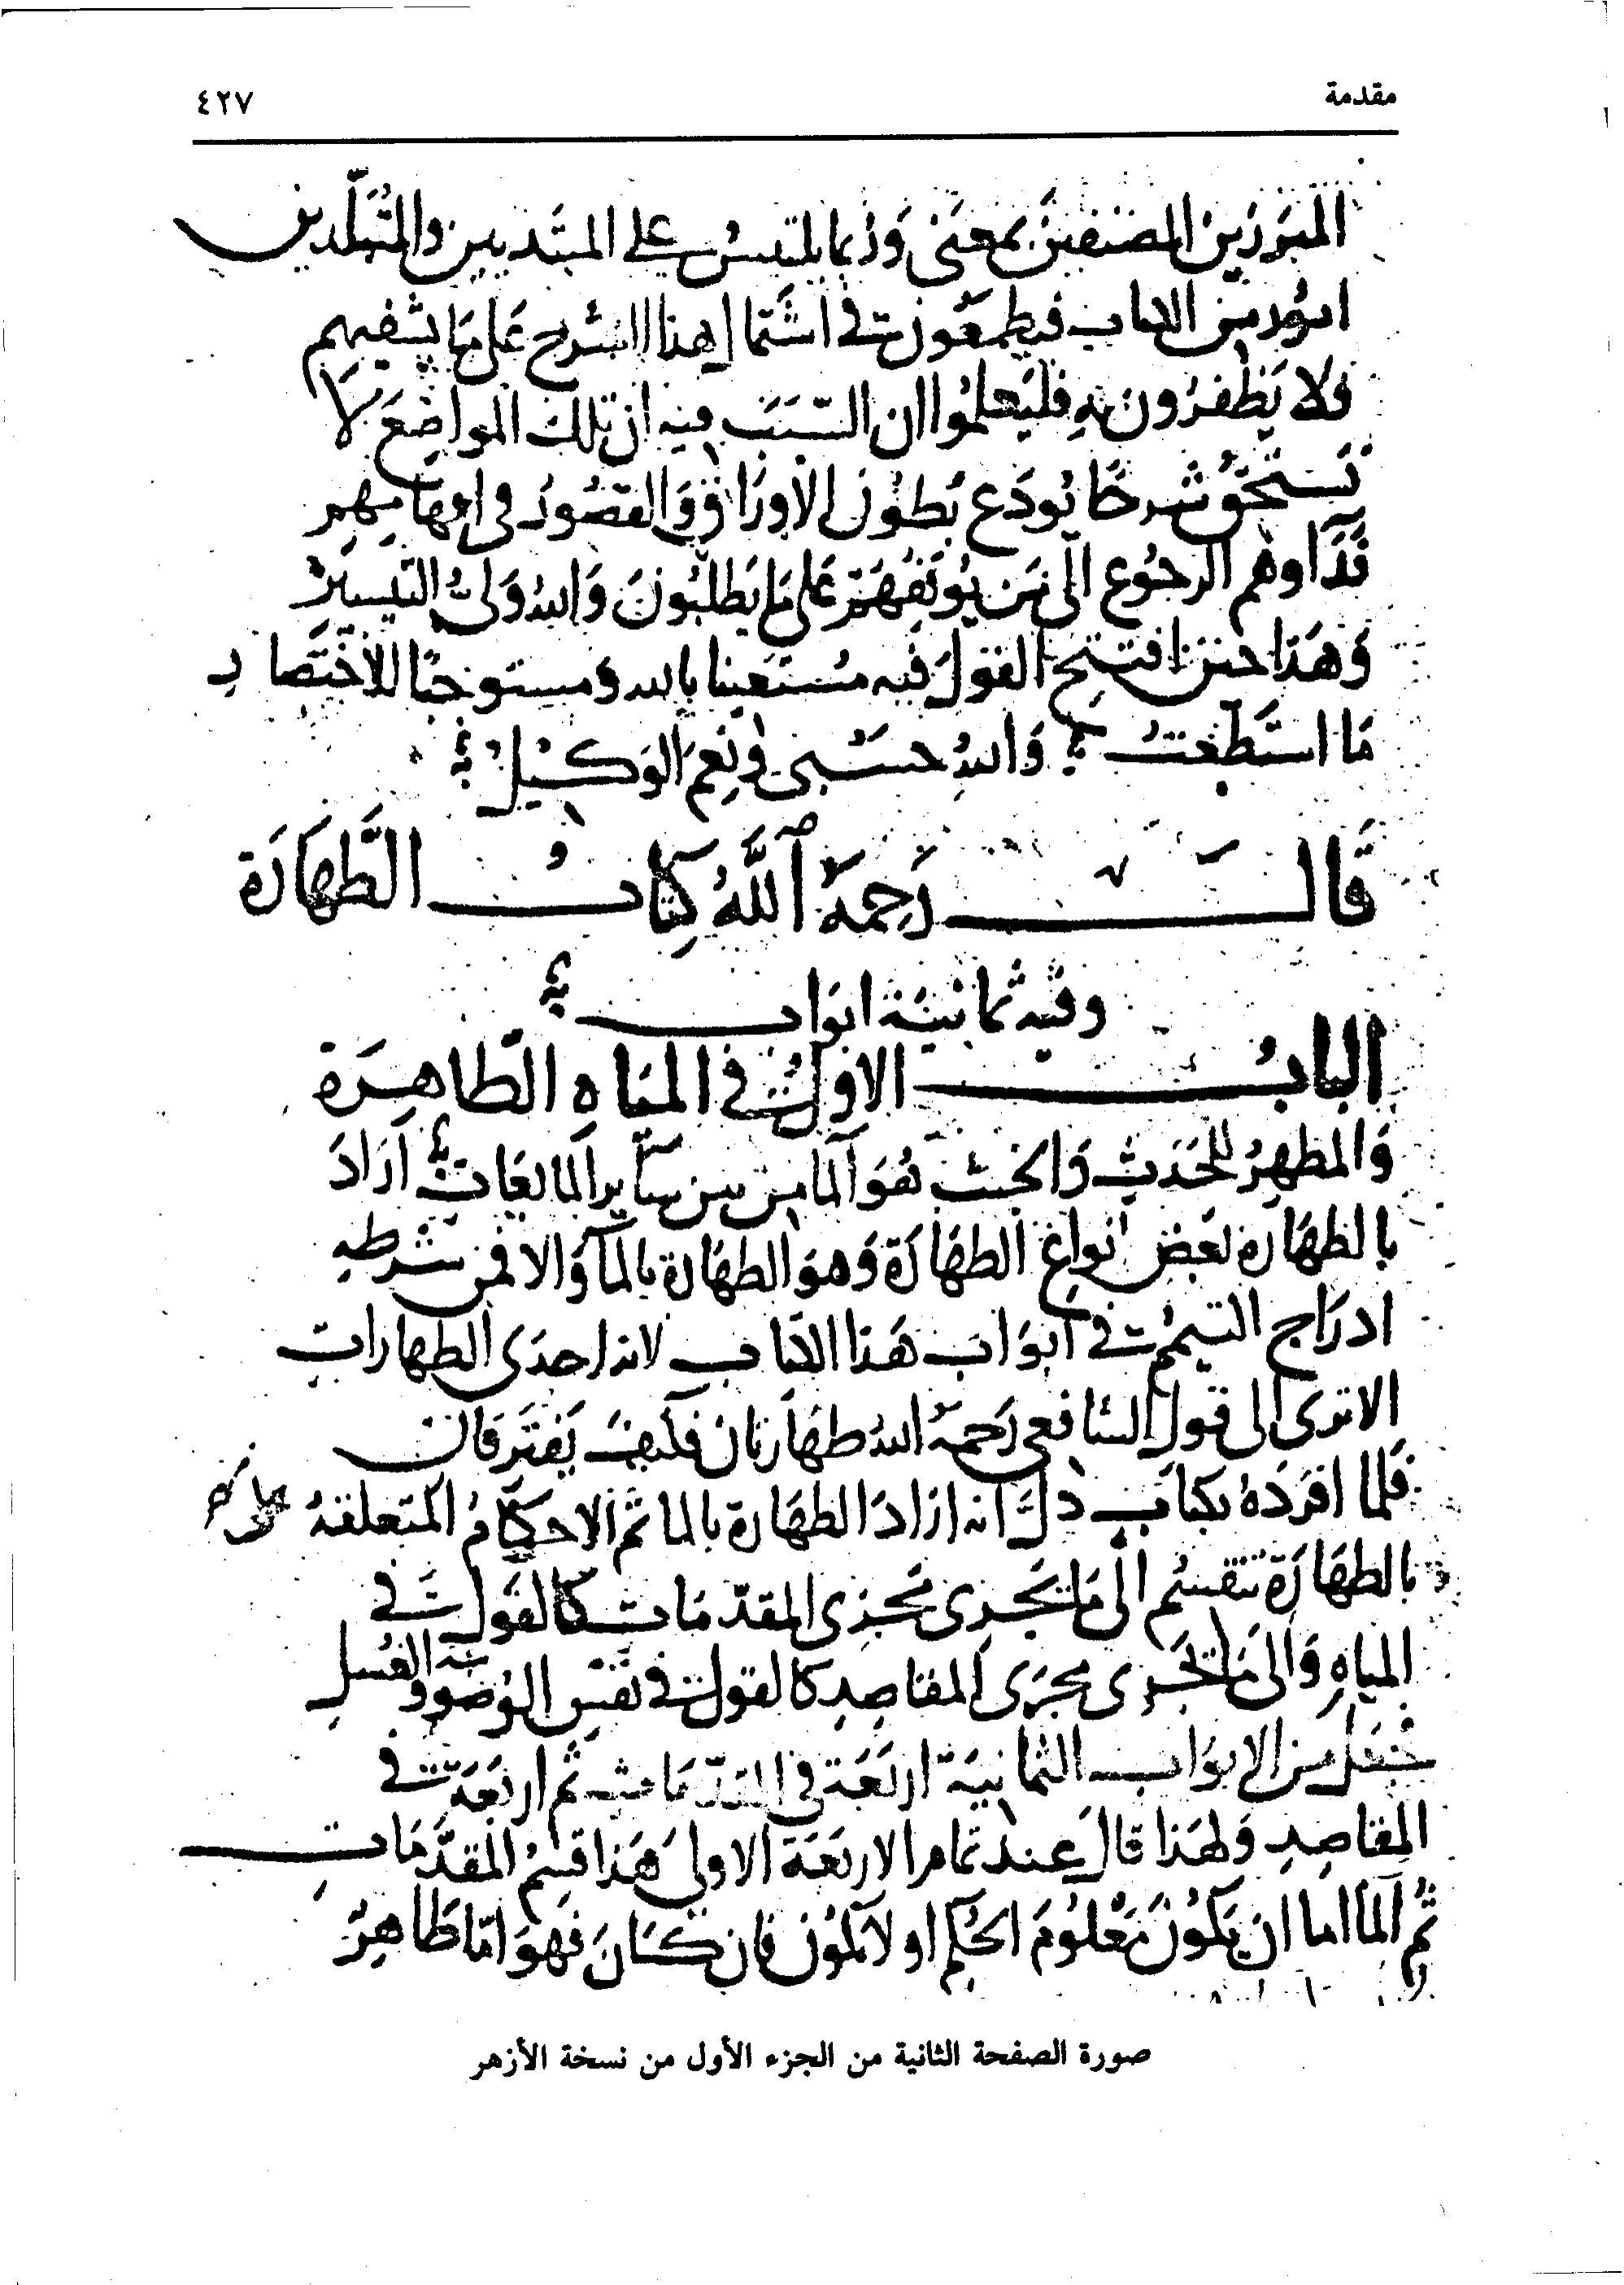 مقدمة
٤٢٧
المبرزين المصنفين بمعنى وربما يلتبس على المبتديين والمتبلدين
امور من الكتاب فيطمعون في اشتمال هذا الشرح على ما يشفيهم
فلا يظفرون به فليعلموا ان السبب فيه ان تلك المواضع لا
تستحق شرحا يودع بطون الاوراق والقصور في افهامهم
فدآوهم الرجوع الى من يوقفهم على ما يطلبون والله ولي التيسير
وهذا حين افتتح القول فيه مستعينا بالله و مستوجبا للاختصار
ما استطعت والله حسبي ونعم الوكيل
قال رحمه الله كتاب الطهارة
وفيه ثمانية ابواب
الباب الاول في المياه الطاهرة
والمطهر للحدث والخبث هو المآ من بين سآير المايعات اراد
بالطهارة بعض انواع الطهارة وهو الطهارة بالمآ والا فمن شرطه
ادراج التيمم في ابواب هذا الكتاب لانه احدى الطهارات
الا ترى الى قول الشافعي رحمه الله طهارتان فكيف يفترقان
فلما افرده بكتاب دل انه اراد الطهارة بالما ثم الاحكام المتعلقة
بالطهارة تنقسم الى ما يجري مجرى المقدمات كالقول في
المياه والى ما يجري مجرى المقاصد كالقول في نفس الوضوء والغسل
فجعل من الابواب الثمانية اربعة في المقدمات ثم اربعة في
المقاصد ولهذا قال عند تمام الاربعة الاولى هذا قسم المقدمات
ثم المآ اما ان يكون معلوم الحكم او لا يكون فان كان فهو اما طاهر
صورة الصفحة الثانية من الجزء الأول من نسخة الأزهر